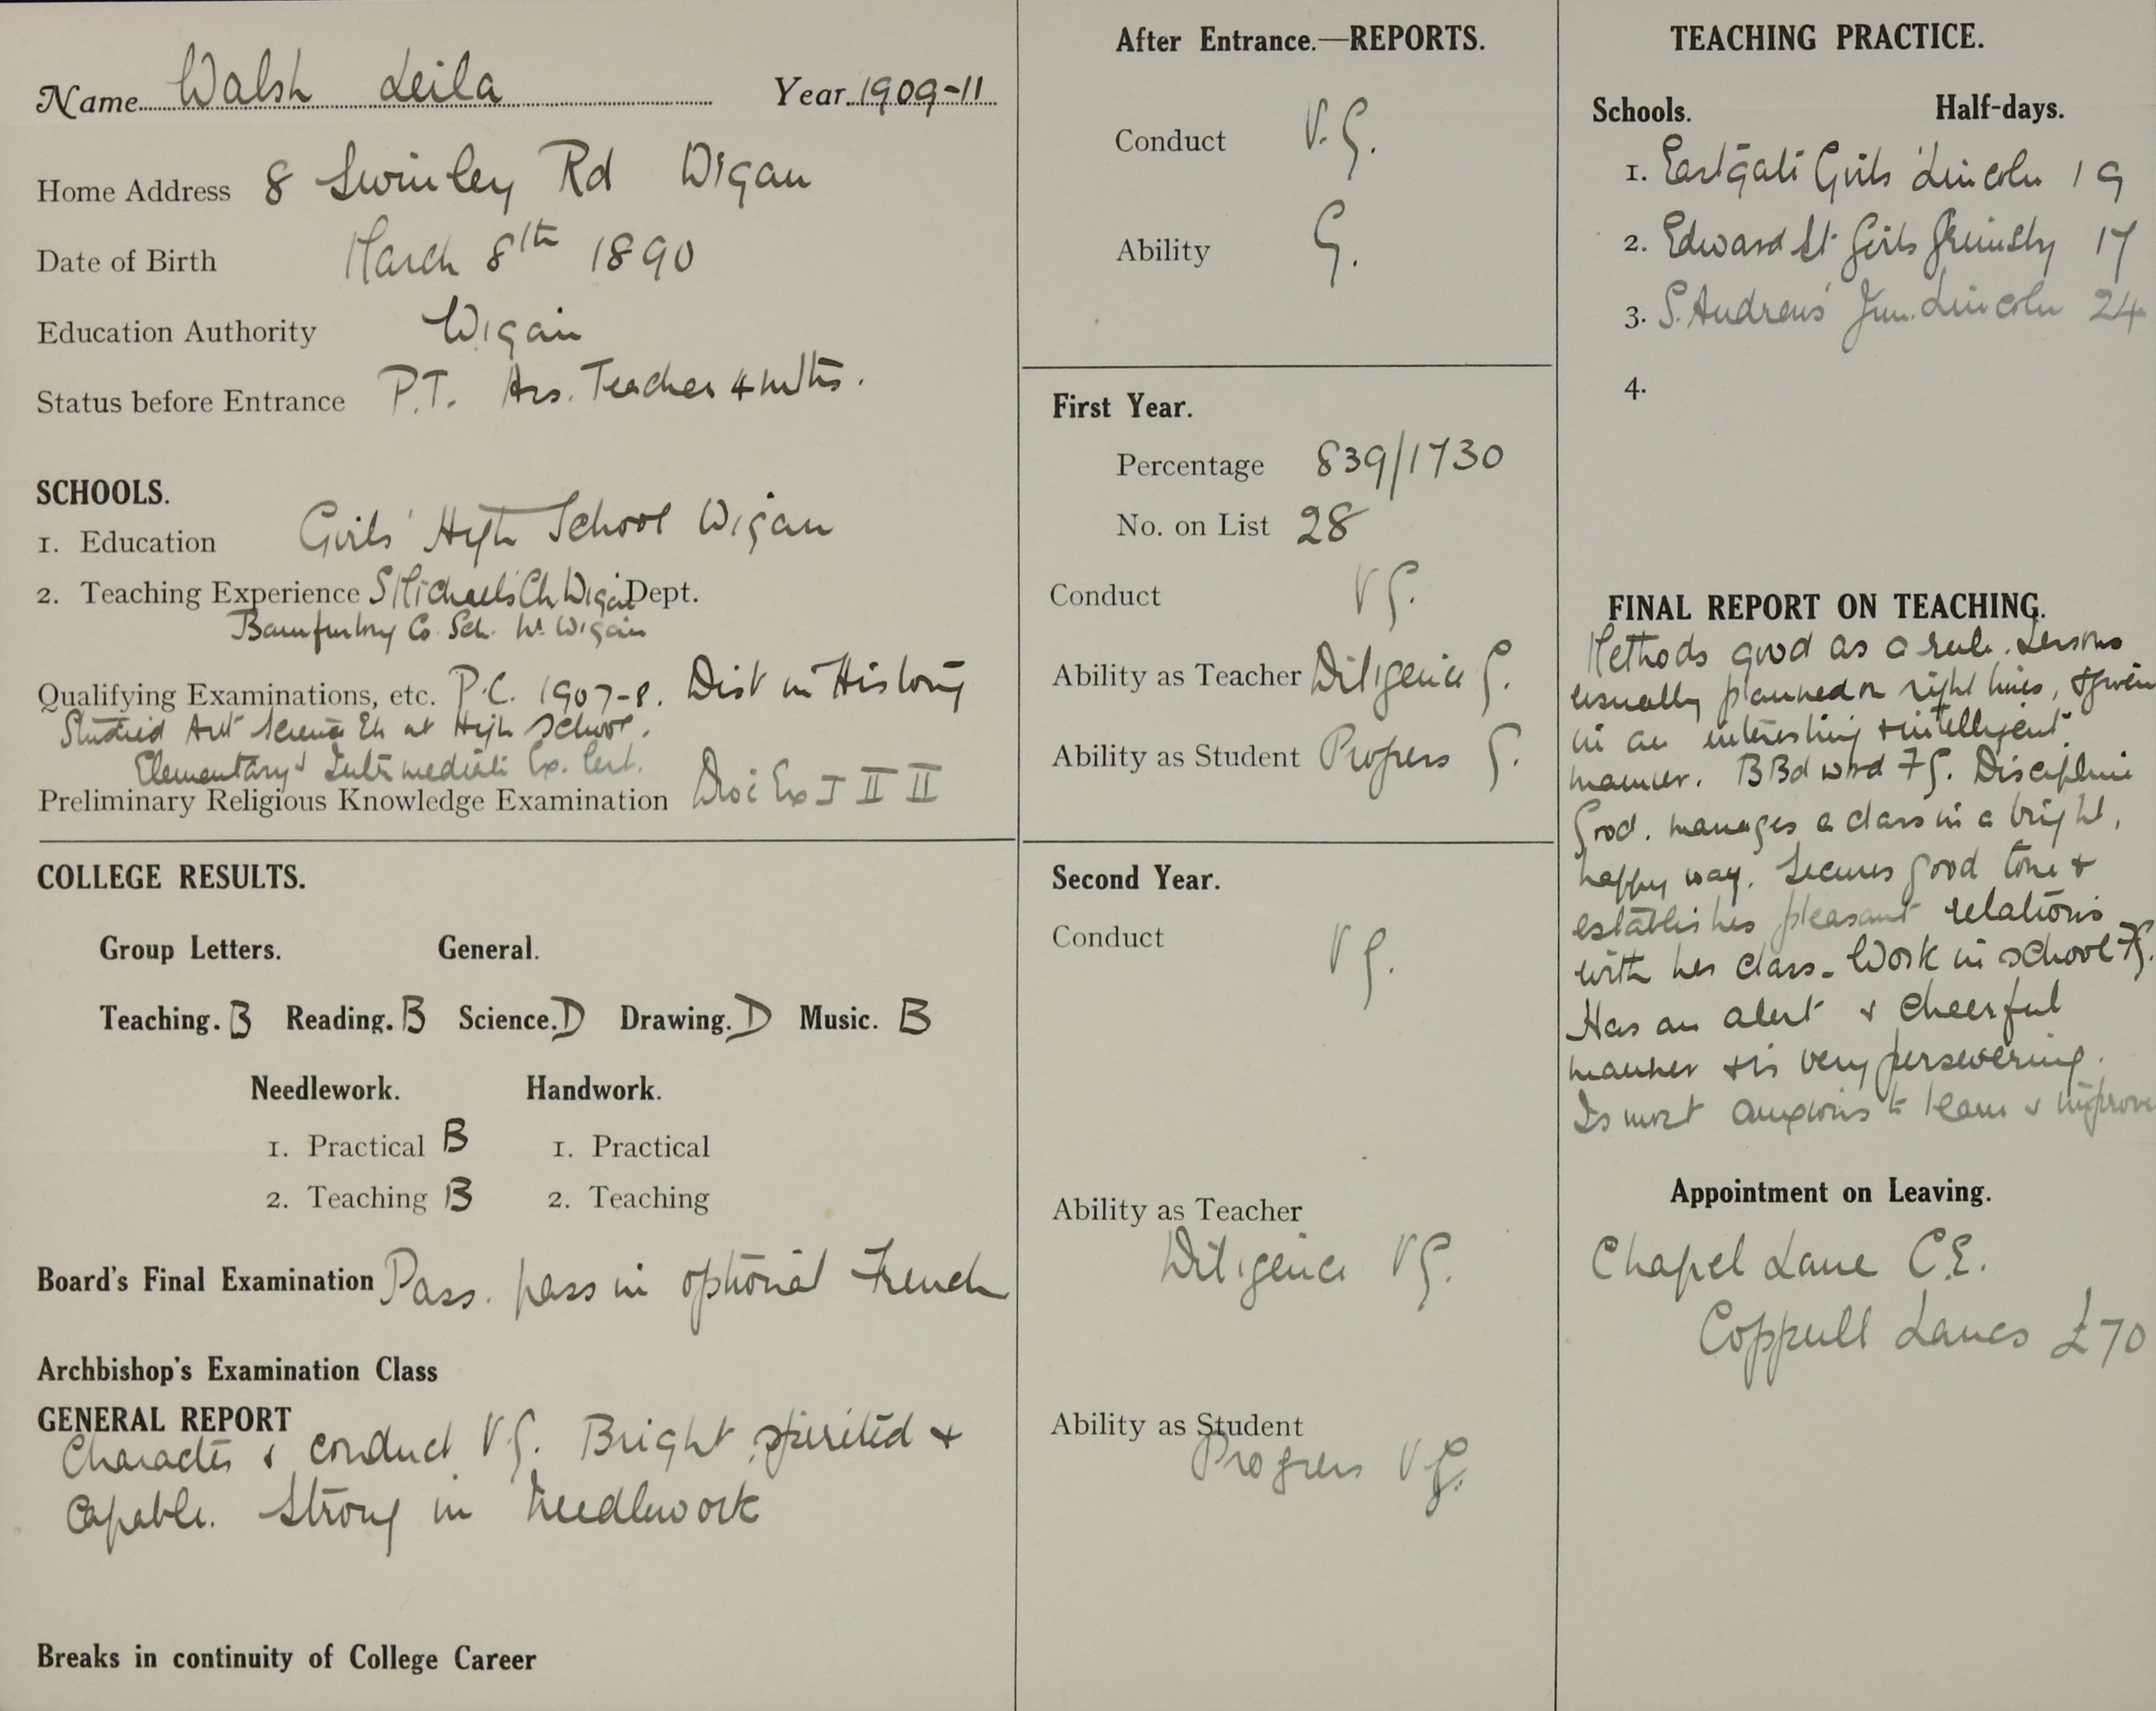 Name Walsh Leila Year 1909-11
Home Address 8 Swinley Rd Wigan
Date of Birth March 8th 1890
Education Authority Wigan
Status before Entrance P.T. Ass. Teacher 4 mths.
SCHOOLS.
1. Education Girls' High School Wigan
2. Teaching Experience S Michael's Ch Wigan Dept.
Co. Sch. Wigan
Qualifying Examinations, etc. P.C. 1907-8. Dist in History
Studied Art Science Eh at High School.
Elementary & Intermediate Ex. Cert.
Preliminary Religious Knowledge Examination Dioc Ex I II II
COLLEGE RESULTS.
Group Letters. General.
Teaching. B Reading. B Science. D Drawing. D Music. B
Needlework. Handwork.
1. Practical B 1. Practical
2. Teaching B 2. Teaching
Board's Final Examination Pass. pass in optional French
Archbishop's Examination Class
GENERAL REPORT
Character & conduct V.G. Bright, spirited &
capable. Strong in Needlework
Breaks in continuity of College Career
After Entrance.—REPORTS.
Conduct V.G.
Ability G.
First Year.
Percentage 839/1730
No. on List 28
Conduct VG.
Ability as Teacher Diligence G.
Ability as Student Progress G.
Second Year.
Conduct VG.
Ability as Teacher
Diligence VG.
Ability as Student
Progress VG.
TEACHING PRACTICE.
Schools. Half-days.
1. Eastgate Girls' Lincoln 19
2. Edward St. Girls Grimsby 17
3. S. Andrews' Jun. Lincoln 24
4.
FINAL REPORT ON TEACHING.
Methods good as a rule. Lessons
usually planned on right lines, & given
in an interesting & intelligent
manner. BBd work FG. Discipline
Good. manages a class in a bright,
happy way. Secures good tone &
establishes pleasant relations
with her class. Work in school FG.
Has an alert & cheerful
manner & is very persevering.
Is most anxious to learn & improve
Appointment on Leaving.
Chapel Lane C.E.
Coppull Lancs £70